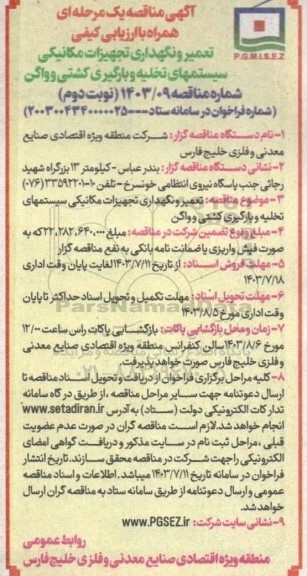 آگهی مناقصه یک مرحله ای
همراه با ارزیابی کیفی
P.G.M.I.S.E.Z
تعمیر و نگهداری تجهیزات مکانیکی
سیستمهای تخلیه و بارگیری کشتی و واگن
شماره مناقصه ۱۴۰۳/۰۹ (نوبت دوم)
(شماره فراخوان در سامانه ستاد ---۲۰۰۳۰۰۴۳۴۰۰۰۰۰۲۵)
۱- نام دستگاه مناقصه گزار: شرکت منطقه ویژه اقتصادی صنایع
معدنی و فلزی خلیج فارس
۲- نشانی دستگاه مناقصه گزار: بندر عباس - کیلومتر ۱۳ بزرگراه شهید
رجائی جنب پاسگاه نیروی انتظامی خونسرخ - تلفن ۱۰-۳۳۵۹۲۲۰۱ (۰۷۶)
۳- موضوع مناقصه: تعمیر و نگهداری تجهیزات مکانیکی سیستمهای
تخلیه و بارگیری کشتی و واگن
۴- مبلغ و نوع تضمین شرکت در مناقصه: مبلغ ۲۲,۲۸۲,۶۴۰,۰۰۰ که به
صورت فیش واریزی یا ضمانت نامه بانکی به نفع مناقصه گزار
۵- مهلت فروش اسناد: از تاریخ ۱۴۰۳/۷/۱۱ لغایت پایان وقت اداری
۱۴۰۳/۷/۱۸
۶- مهلت تحویل اسناد: مهلت تکمیل و تحویل اسناد حداکثر تا پایان
وقت اداری مورخ ۱۴۰۳/۸/۵
۷- زمان و محل بازگشایی پاکات: بازگشایی پاکات راس ساعت ۱۲/۰۰
مورخ ۱۴۰۳/۸/۶ سالن کنفرانس منطقه ویژه اقتصادی صنایع معدنی
و فلزی خلیج فارس صورت خواهد پذیرفت.
۸- کلیه مراحل برگزاری فراخوان از دریافت و تحویل اسناد مناقصه تا
ارسال دعوتنامه جهت سایر مراحل مناقصه، از طریق درگاه سامانه
تدارکات الکترونیکی دولت (ستاد) به آدرس www.setadiran.ir
انجام خواهد شد. لازم است مناقصه گران در صورت عدم عضویت
قبلی، مراحل ثبت نام در سایت مذکور و دریافت گواهی امضای
الکترونیکی را جهت شرکت در مناقصه محقق سازند. تاریخ انتشار
فراخوان در سامانه تاریخ ۱۴۰۳/۷/۱۱ میباشد. اطلاعات و اسناد مناقصه
عمومی و ارسال دعوتنامه از طریق سامانه ستاد به مناقصه گران ارسال
خواهد شد.
۹- نشانی سایت شرکت: www.PGSEZ.ir
روابط عمومی
منطقه ویژه اقتصادی صنایع معدنی و فلزی خلیج فارس